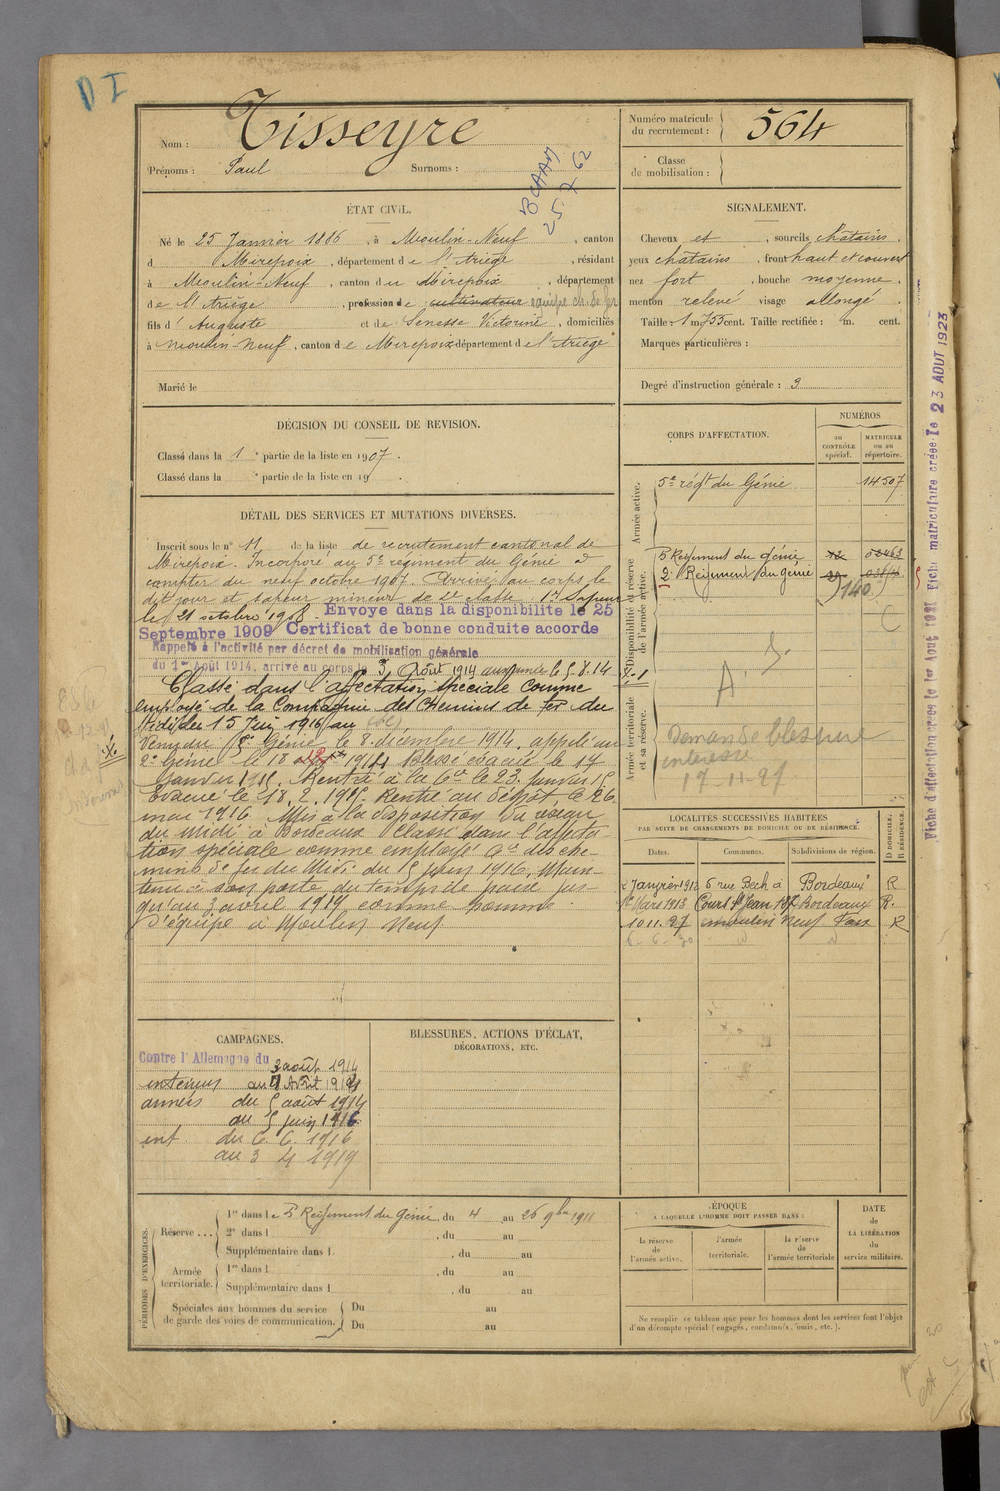 D I
Nom : Tisseyre
Prénoms : Paul Surnoms :
BCAAM
25. X 62
Numéro matricule du recrutement : 564
Classe de mobilisation :
ÉTAT CIVIL.
Né le 25 Janvier 1886, à Moulin-Neuf, canton
d Mirepoix, département de l'Ariège, résidant
à Moulin-Neuf, canton du Mirepoix, département
de l'Ariège, profession de cultivateur équipe ch. de fer
fils d'Auguste et de Senesse Victorine, domiciliés
à Moulin-Neuf, canton de Mirepoix département de l'Ariège
Marié le
SIGNALEMENT.
Cheveux et , sourcils châtains,
yeux châtains, front haut et couvert
nez fort, bouche moyenne,
menton relevé visage allongé.
Taille : 1 m 755 cent. Taille rectifiée : m. cent.
Marques particulières :
Degré d'instruction générale : 3
DÉCISION DU CONSEIL DE REVISION.
Classé dans la 1e partie de la liste en 1907.
Classé dans la e partie de la liste en 19 .
DÉTAIL DES SERVICES ET MUTATIONS DIVERSES.
Inscrit sous le n° 11 de la liste de recrutement cantonal de
Mirepoix. Incorporé au 5e régiment du Génie à
compter du neuf octobre 1907. Arrivé au corps le
dit jour et sapeur mineur de 2e classe. 1er Sapeur
le 21 octobre 1908. Envoye dans la disponibilite le 25
Septembre 1909 Certificat de bonne conduite accorde
Rappelé à l'activité par décret de mobilisation générale
du 1er Août 1914, arrivé au corps le 3 Août 1914 aux armées le 5.8.14
Classé dans l'affectation spéciale comme
employé de la Compagnie des Chemins de fer du
Midi du 15 Juin 1916 au
Venu du 5e Génie le 8 décembre 1914, appelé au
2e Génie le 18 1914 Blessé évacué le 14
janvier 1915. Rentré à la Cie le 23 Janvier 15
Evacué le 18.2.1915 Rentré au Dépôt le 26
mai 1916. Mis à la disposition du réseau
du midi à Bordeaux Classé dans l'affecta-
tion spéciale comme employé Cie des che-
mins de fer du Midi du 15 juin 1916. Main-
tenu à son poste du temps de paix jus-
qu'au 3 avril 1919 comme homme
d'équipe à Moulin Neuf
CORPS D'AFFECTATION.
NUMÉROS
au CONTRÔLE spécial.
MATRICULE ou au répertoire.
Armée active.
5e régt du Génie 14507
Disponibilité et réserve de l'armée active.
5 Régiment du génie
2e Régiment du génie
1140
A. S.
Armée territoriale et sa réserve.
Demande blessure
intéressé
17-11-27
Fiche d'affectation créée le 1er Août 1921 Fiche matriculaire créée le 23 AOUT 1923
LOCALITÉS SUCCESSIVES HABITÉES
PAR SUITE DE CHANGEMENTS DE DOMICILE OU DE RÉSIDENCE.
Dates. Communes. Subdivisions de région. D DOMICILE, R RÉSIDENCE.
2 Janvier 1912 6 rue Bech à Bordeaux R
1er Mars 1913 Cours St Jean 187 Bordeaux R.
10.11.27 Moulin Neuf Foix R
6-6-30
CAMPAGNES.
Contre l'Allemagne du 3 août 1914
intérieur au 4 Août 1914
armées du 5 août 1914
au 5 juin 1916
int du 6.6.1916
au 3 4 1919
BLESSURES, ACTIONS D'ÉCLAT,
DÉCORATIONS, ETC.
PÉRIODES D'EXERCICES.
Réserve ... 1re dans le 5 Régiment du Génie, du 4 au 26 9bre 1911
2e dans l , du au
Supplémentaire dans l , du au
Armée territoriale. 1re dans l , du au
Supplémentaire dans l , du au
Spéciales aux hommes du service de garde des voies de communication. Du au
Du au
ÉPOQUE
A LAQUELLE L'HOMME DOIT PASSER DANS :
la réserve de l'armée active.
l'armée territoriale.
la réserve de l'armée territoriale
DATE de LA LIBÉRATION du service militaire.
Ne remplir ce tableau que pour les hommes dont les services font l'objet
d'un décompte spécial (engagés, condamnés, omis, etc.).